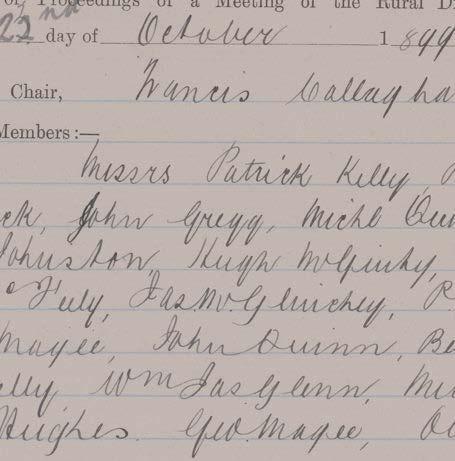 of Proceedings of a Meeting of the Rural Di
22nd day of October 1899
Chair, Francis Callagha
Members:—
Messrs Patrick Kelly,
ck, John Gregg, Michl Qui
Johnston, Hugh McGinty,
Feely, Jas. McGlinchey, P.
Magee, John Quinn, Be
elly Wm Jas Glenn, Mi
Hughes. Geo. Magee, O